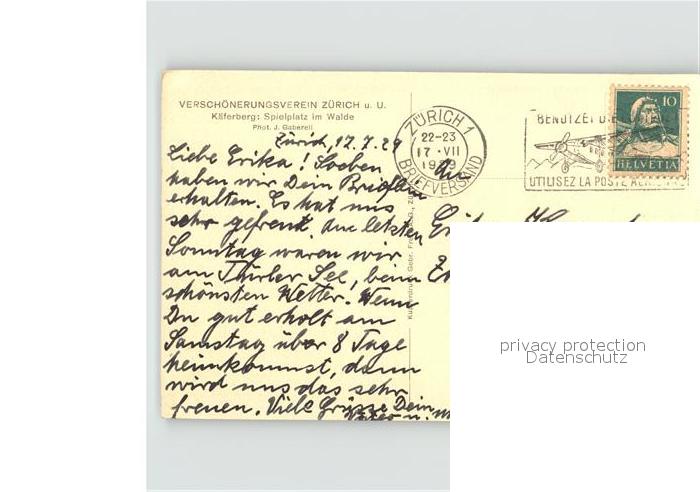 VERSCHÖNERUNGSVEREIN ZÜRICH u. U.
Käferberg: Spielplatz im Walde
Phot. J. Gaberell
Zürich, 17.7.29
Liebe Erika! Soeben
haben wir Dein Brieflein
erhalten. Es hat uns
sehr gefreut. Am letzten
Sonntag waren wir
am Türler See, beim
schönsten Wetter. Wenn
Du gut erholt am
Samstag über 8 Tage
heimkommst, dann
wird uns das sehr
freuen. Viele Grüsse Dein
Vater u.
ZÜRICH 1
22-23
17·VII
1929
BRIEFVERSAND
BENÜTZET D.
UTILISEZ LA POSTE
10
HELVETIA
privacy protection
Datenschutz